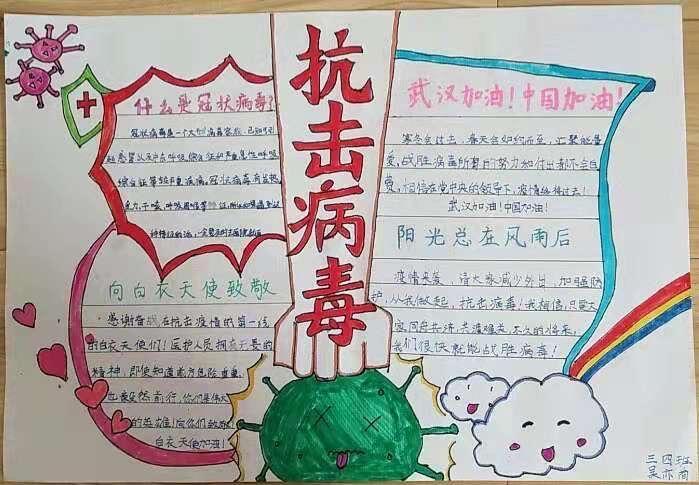 抗击病毒
什么是冠状病毒?
冠状病毒是一个大型病毒家族,已知可引
起感冒以及中东呼吸综合征和严重急性呼吸
综合征等较严重疾病。冠状病毒有发热、
乏力、干咳、呼吸困难等
一定要及时去医院
向白衣天使致敬
感谢奋战在抗击疫情的第一线
的白衣天使们!医护人员拥有无畏的
精神,即使知道前方危险重重,
也毅然前行,你们是伟大
的英雄!向你们致敬!
白衣天使加油!
武汉加油!中国加油!
寒冬会过去,春天会如约而至,汇聚能量
爱,战胜病毒所有的努力和付出都不会白
费,相信在党中央的领导下,疫情终将过去!
武汉加油!中国加油!
阳光总在风雨后
疫情来袭,请大家减少外出,加强防
护,从我做起,抗击病毒!我相信,只要大
家同舟共济,共渡难关,不久的将来,
我们很快就能战胜病毒!
三四班
吴亦